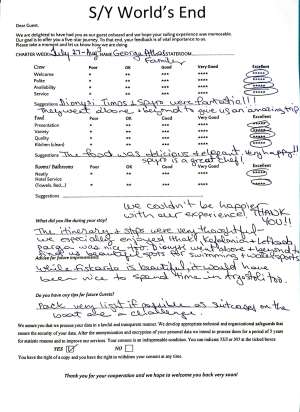 S/Y World's End
Dear Guest,
We are delighted to have had you as our guest onboard and we hope your sailing experience was memorable.
Our goal is to offer you a five-star journey. To that end, your feedback is of vital importance to us.
Please take a moment and let us know how we are doing.
CHARTER WEEK July 27-Aug NAME George STATEROOM
Family
Crew POOR OK GOOD GREAT Excellent
Welcome * ** *** **** *****
Polite * ** *** **** *****
Availability * ** *** **** *****
Service * ** *** **** *****
Suggestions Dionysi, Timos + Spyro were fantastic!!!
They went above + beyond to give us an amazing trip
Food POOR OK GOOD GREAT Excellent
Presentation * ** *** **** *****
Variety * ** *** **** *****
Quality * ** *** **** *****
Kitchen (clean) * ** *** **** *****
Suggestions The food was delicious + elegant. Very happy!!
Spyro is a great chef!
Rooms/ Bathrooms POOR OK GOOD GREAT Excellent
Neatly * ** *** **** *****
Hotel Service * ** *** **** *****
(Towels, Bed...)
Suggestions
We couldn't be happier
with our experience! THANK
YOU!!
What did you like during your stay?
The itinerary + stops were very thoughtful -
we especially enjoyed Ithaki, Kefalonia + Lefkada
was nice too. Dionysi went above + beyond to
find us beautiful spots for swimming + watersports
Advice for future improvements?
While Fiskardo is beautiful, it would have
been nice to spend time in too.
Do you have any tips for future Guests?
Pack very light if possible as suitcases on the
boat are a challenge.
We assure you that we process your data in a lawful and transparent manner. We develop appropriate technical and organizational safeguards that
ensure the security of your data. After the anonymization and encryption of your personal data we intend to process them for a period of 5 years
for statistic reasons and to improve our services. Your consent is an indispensable condition. You can indicate YES or NO at the ticked boxes:
YES NO
You have the right of a copy and you have the right to withdraw your consent at any time.
Thank you for your cooperation and we hope to welcome you back very soon!